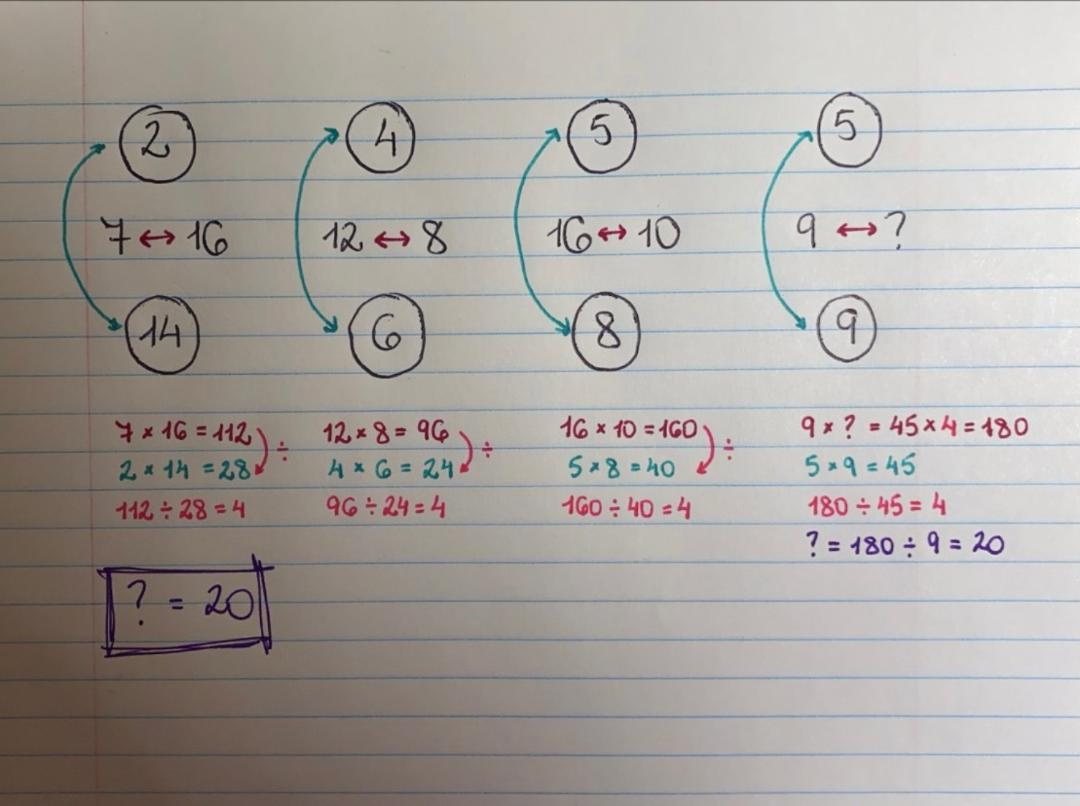 2 4 5 5
7 ↔ 16 12 ↔ 8 16 ↔ 10 9 ↔ ?
14 6 8 9
7 × 16 = 112 ÷ 12 × 8 = 96 ÷ 16 × 10 = 160 ÷ 9 × ? = 45 × 4 = 180
2 × 14 = 28 4 × 6 = 24 5 × 8 = 40 5 × 9 = 45
112 ÷ 28 = 4 96 ÷ 24 = 4 160 ÷ 40 = 4 180 ÷ 45 = 4
? = 180 ÷ 9 = 20
? = 20